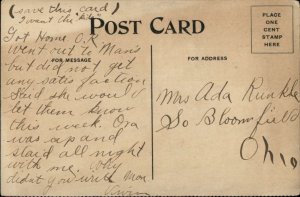 (save this card)
I want the
POST CARD
PLACE
ONE
CENT
STAMP
HERE
FOR MESSAGE
FOR ADDRESS
Got Home O.K.
Went out to Mans
but did not get
any satisfaction
Said she would
let them know
this week Ora
was up and
staid all night
with me. Why
didn't you write Mon
Mrs Ada Runkle
So Bloomfield
Ohio